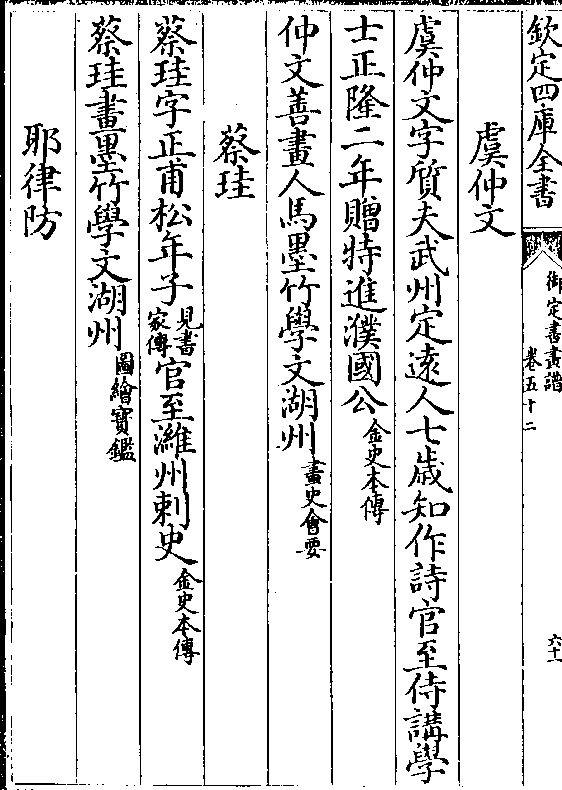 欽定四庫全書
御定書畫譜
卷五十二
六十一
虞仲文
虞仲文字質夫武州定遠人七歲知作詩官至侍講學
士正隆二年贈特進濮國公金史本傳
仲文善畫人馬墨竹學文湖州畫史會要
蔡珪
蔡珪字正甫松年子見書家傳官至濰州刺史金史本傳
蔡珪畫墨竹學文湖州圖繪寶鑑
耶律防